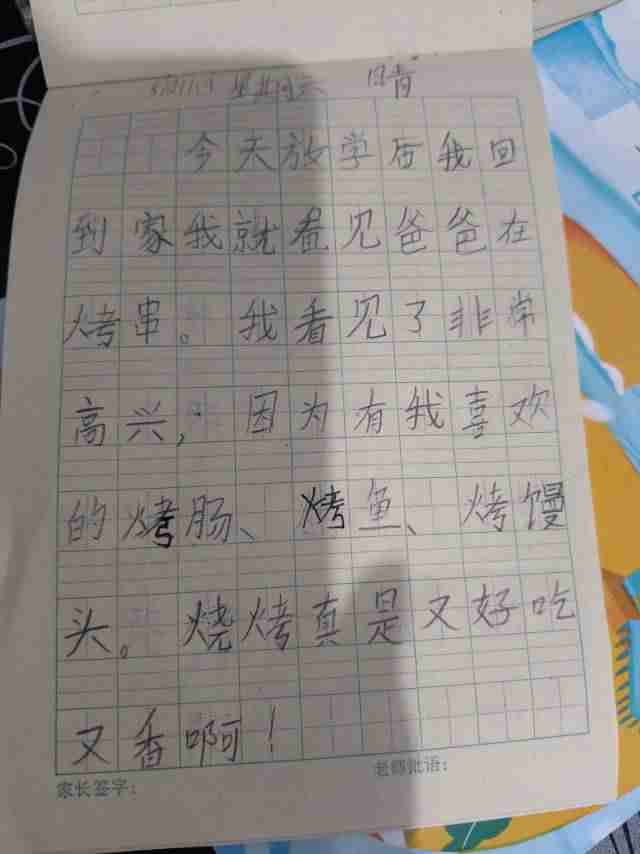 星期六 晴
今天放学后我回
到家我就看见爸爸在
烤串。我看见了非常
高兴,因为有我喜欢
的烤肠、烤鱼、烤馒
头。烧烤真是又好吃
又香啊!
家长签字: 老师批语: